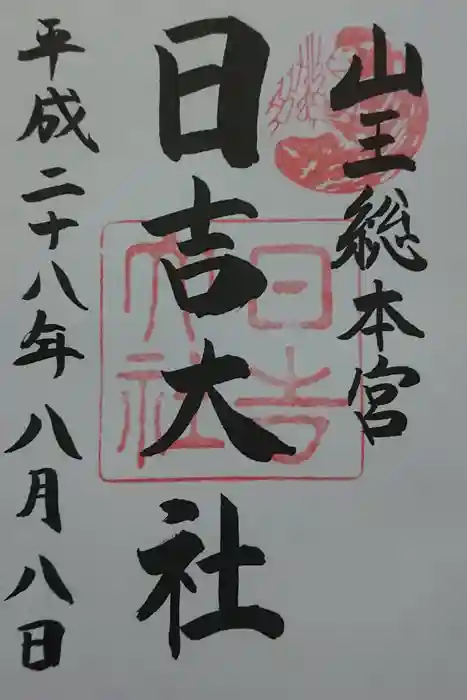 山王総本宮
日吉大社
平成二十八年八月八日
日吉
大社